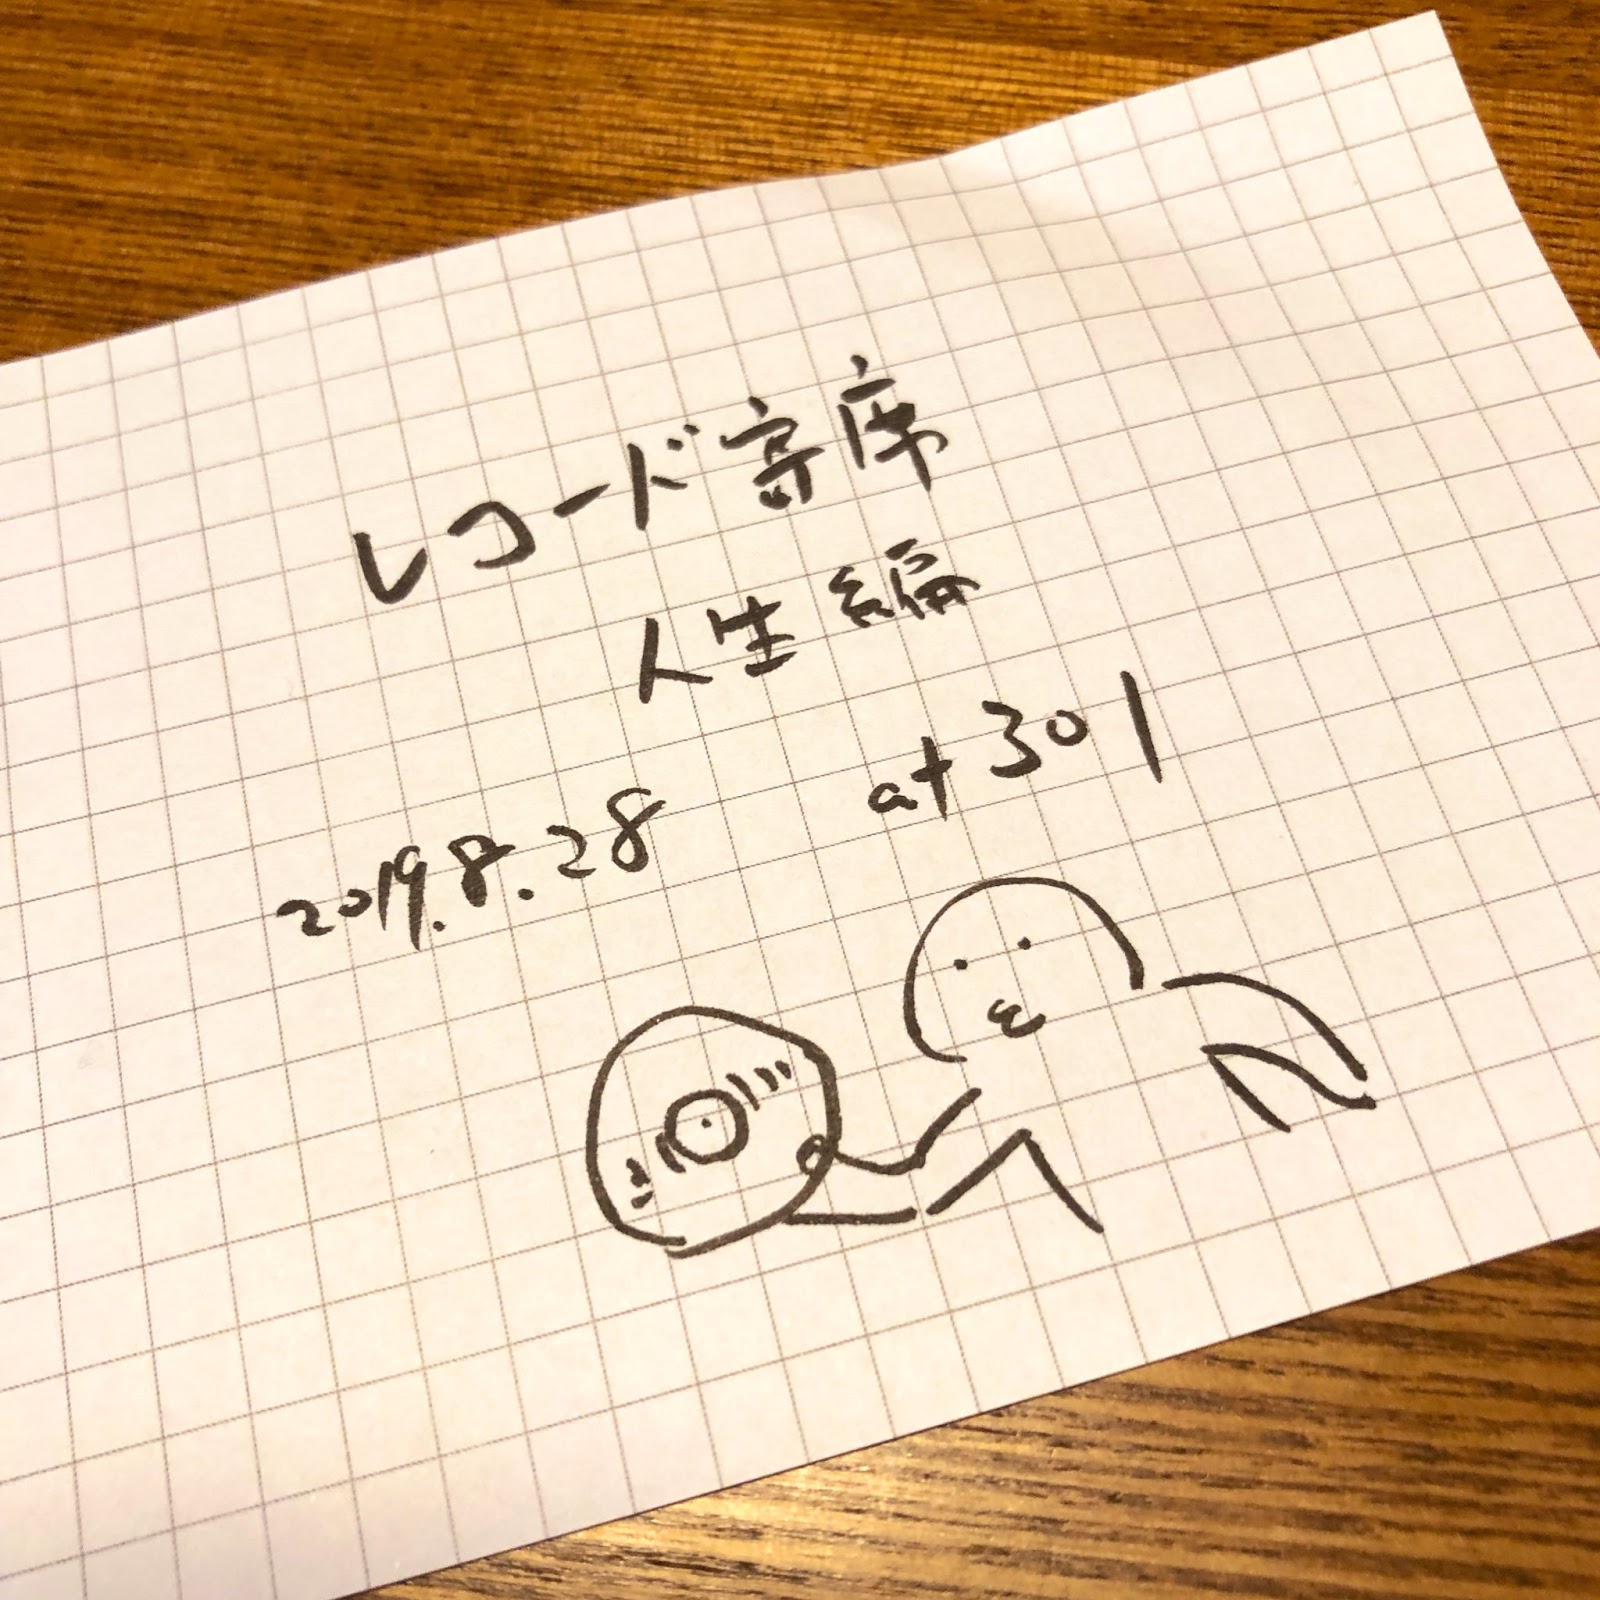 レコード寄席
人生編
2019.8.28 at 301